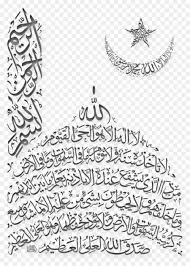 بسم الله الرحمن الرحيم
لا اله الا الله محمد رسول الله
الله
لا اله الا هو الحي القيوم
لا تأخذه سنة ولا نوم له ما في السموات وما في الارض
من ذا الذي يشفع عنده الا باذنه يعلم ما بين ايديهم
وما خلفهم ولا يحيطون بشيء من علمه الا بما شاء
وسع كرسيه السموات والارض ولا يؤده حفظهما وهو العلي العظيم
صدق الله العلي العظيم